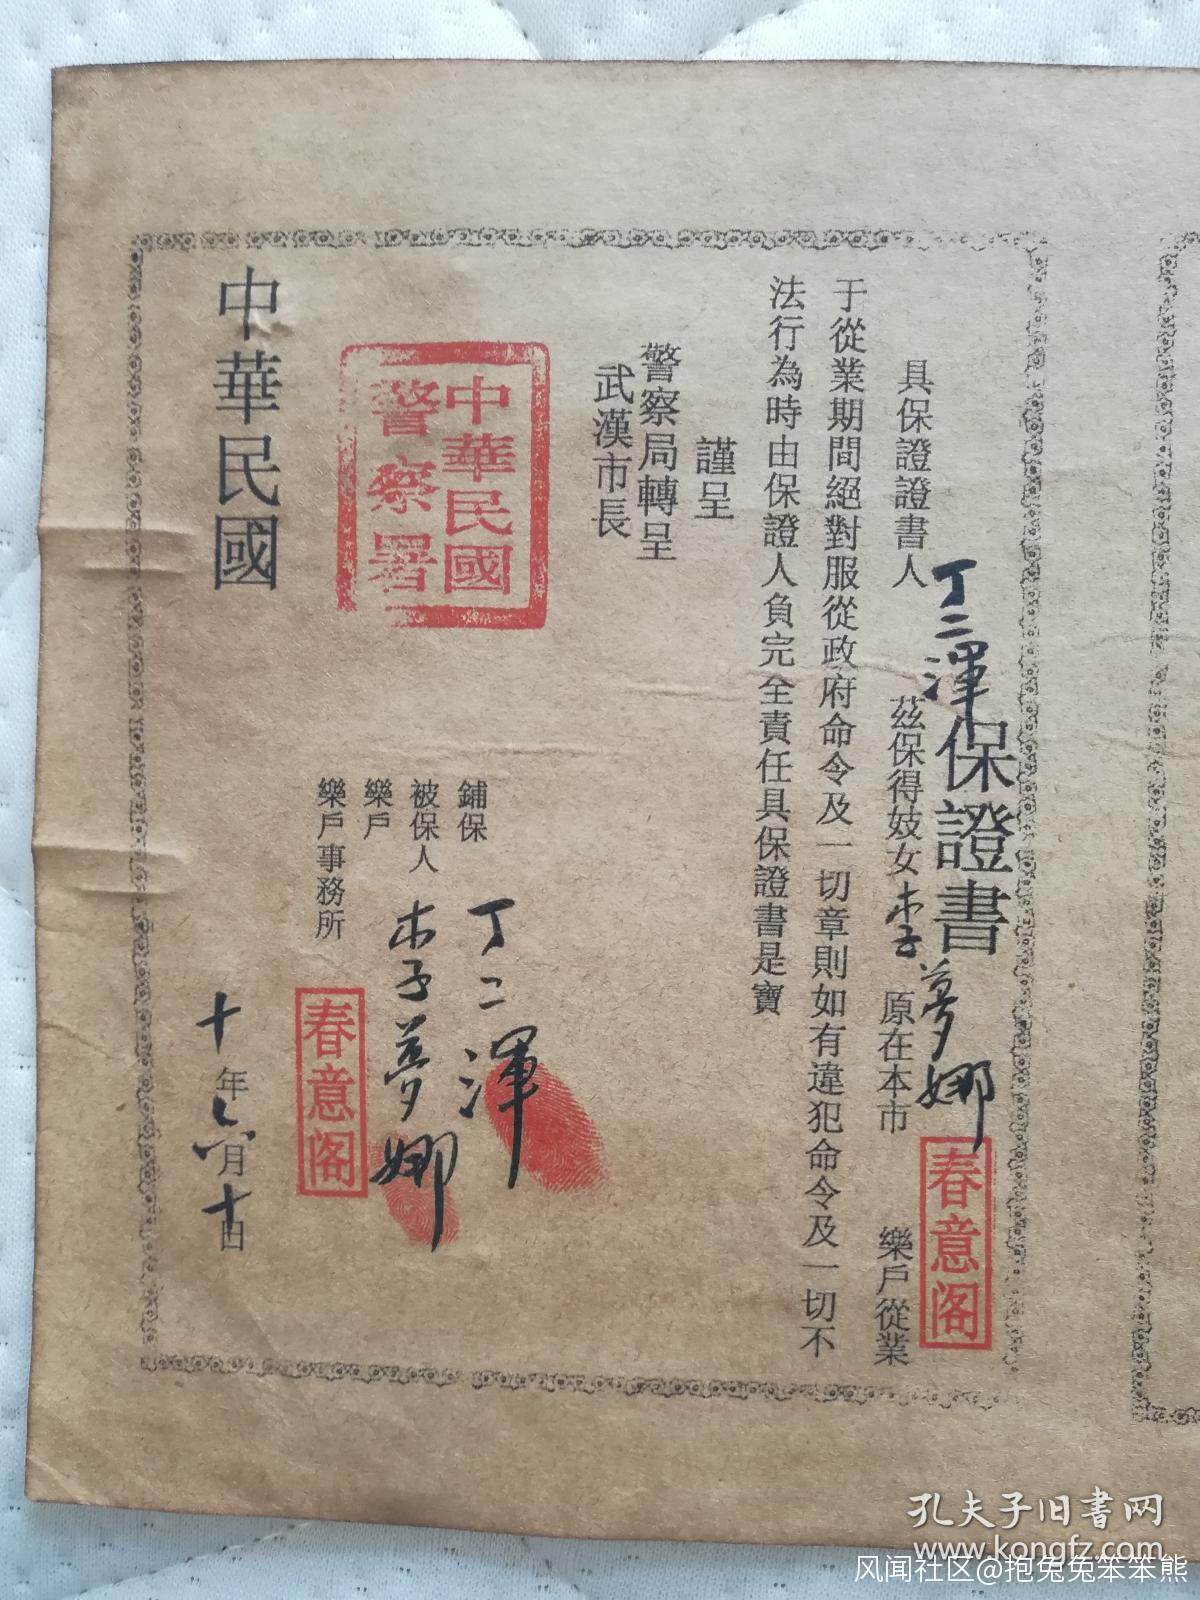 保證書
具保證證書人丁二渾茲保得妓女李夢娜原在本市春意阁樂戶從業
于從業期間絕對服從政府命令及一切章則如有違犯命令及一切不
法行為時由保證人負完全責任具保證書是寶
謹呈
警察局轉呈
武漢市長
鋪保 丁二渾
被保人 李夢娜
樂戶
樂戶事務所 春意阁
中華民國
警察署
中華民國 十年六月十日
孔夫子旧书网
www.kongfz.com
风闻社区@抱兔兔笨笨熊